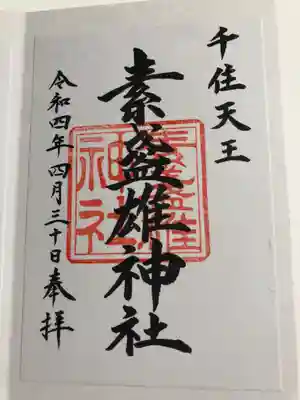 千住天王
素盞雄神社
令和四年四月三十日奉拝